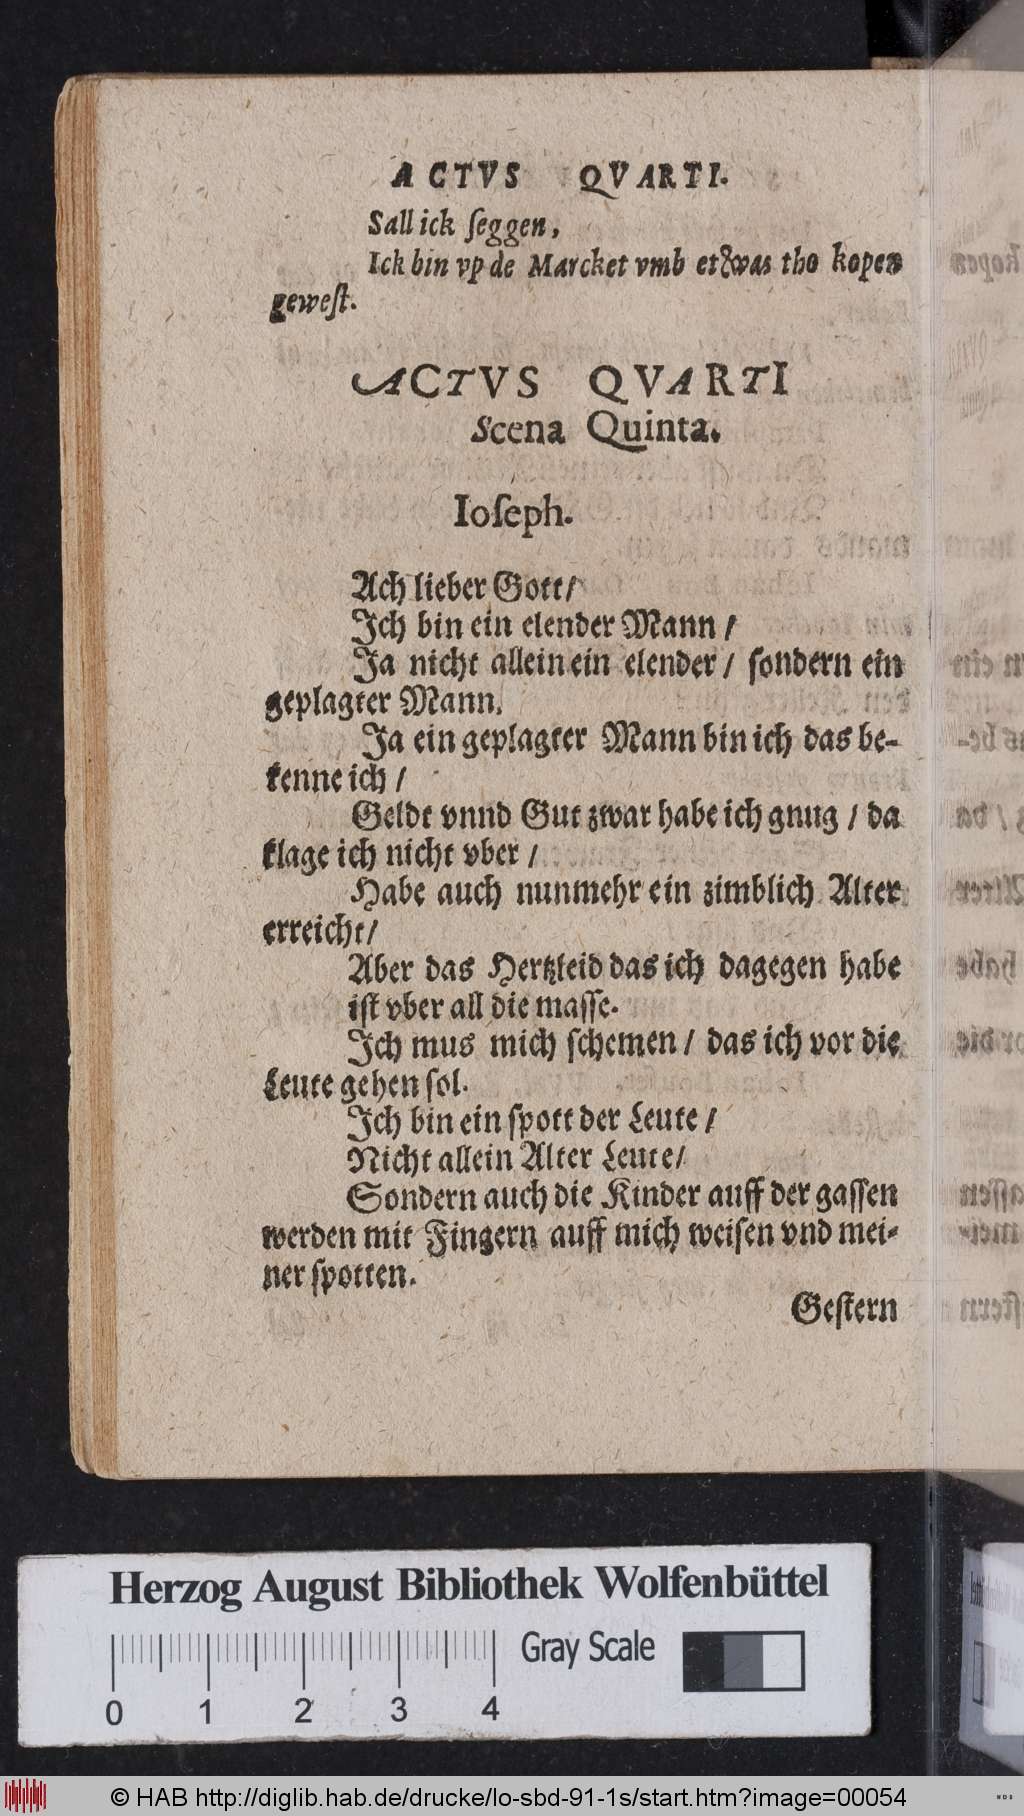 ACTVS QVARTI.
Sall ick ſeggen,
Ick bin vp de Marcket vmb etwas tho kopen
geweſt.
ACTVS QVARTI
Scena Quinta.
Ioſeph.
Ach lieber Gott/
Ich bin ein elender Mann /
Ja nicht allein ein elender / ſondern ein
geplagter Mann.
Ja ein geplagter Mann bin ich das be-
kenne ich /
Geldt vnnd Gut zwar habe ich gnug / da
klage ich nicht vber /
Habe auch nunmehr ein zimblich Alter
erreicht/
Aber das Hertzleid das ich dagegen habe
iſt vber all die maſſe.
Ich mus mich ſchemen / das ich vor die
Leute gehen ſol.
Ich bin ein ſpott der Leute /
Nicht allein Alter Leute/
Sondern auch die Kinder auff der gaſſen
werden mit Fingern auff mich weiſen vnd mei-
ner ſpotten.
Geſtern
Herzog August Bibliothek Wolfenbüttel
Gray Scale
0 1 2 3 4
© HAB http://diglib.hab.de/drucke/lo-sbd-91-1s/start.htm?image=00054